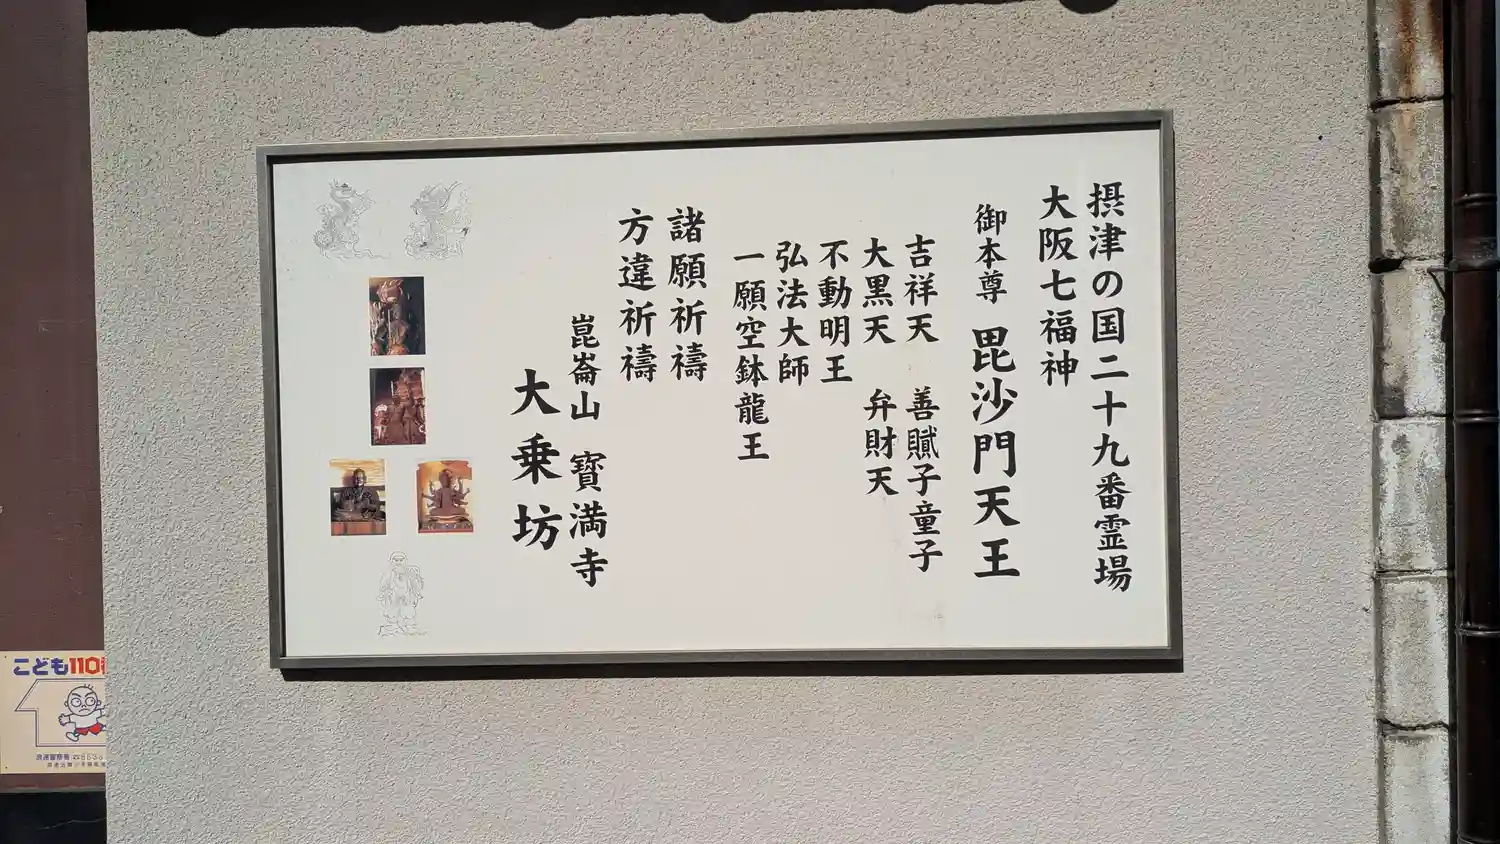 摂津の国二十九番霊場
大阪七福神
御本尊 毘沙門天王
吉祥天 善膩子童子
大黒天 弁財天
不動明王
弘法大師
一願空鉢龍王
諸願祈禱
方違祈禱
崑崙山 寳満寺
大乗坊
こども110